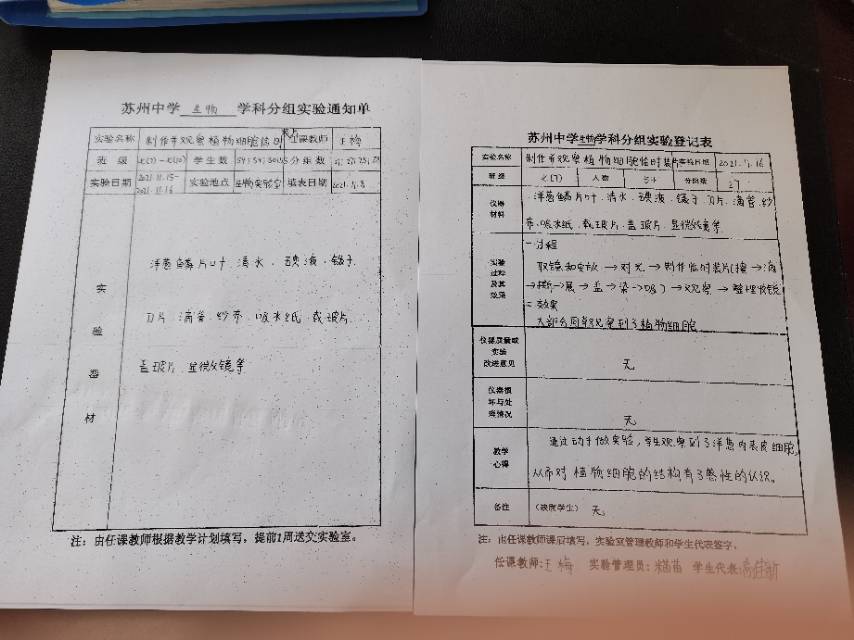 苏州中学 生物 学科分组实验通知单
实验名称 制作并观察植物细胞临时装片 任课教师 王梅
班级 七(7)-七(10) 学生数 分组数
实验日期 2021.11.15-2021.11.16 实验地点 生物实验室 填表日期 2021.11.8
实验器材
洋葱鳞片叶、清水、碘液、镊子
刀片、滴管、纱布、吸水纸、载玻片、
盖玻片、显微镜等
注：由任课教师根据教学计划填写，提前1周送交实验室。
苏州中学生物学科分组实验登记表
实验名称 制作并观察植物细胞临时装片 实验日期 2021.11.16
班级 七(7) 人数 54 分组数 27
仪器材料
洋葱鳞片叶、清水、碘液、镊子、刀片、滴管、纱
布、吸水纸、载玻片、盖玻片、显微镜等
实验过程及其效果
一过程
取镜和安放→对光→制作临时装片(擦→滴
→撕→展→盖→染→吸)→观察→整理收镜
二效果
大部分同学观察到了植物细胞
仪器质量或实验改进意见
无
仪器损坏与处理情况
无
教学心得
通过动手做实验，学生观察到了洋葱内表皮细胞，
从而对植物细胞的结构有了感性的认识。
备注 （缺席学生） 无
注：由任课教师课后填写，实验室管理教师和学生代表签字。
任课教师：王梅 实验管理员： 学生代表：